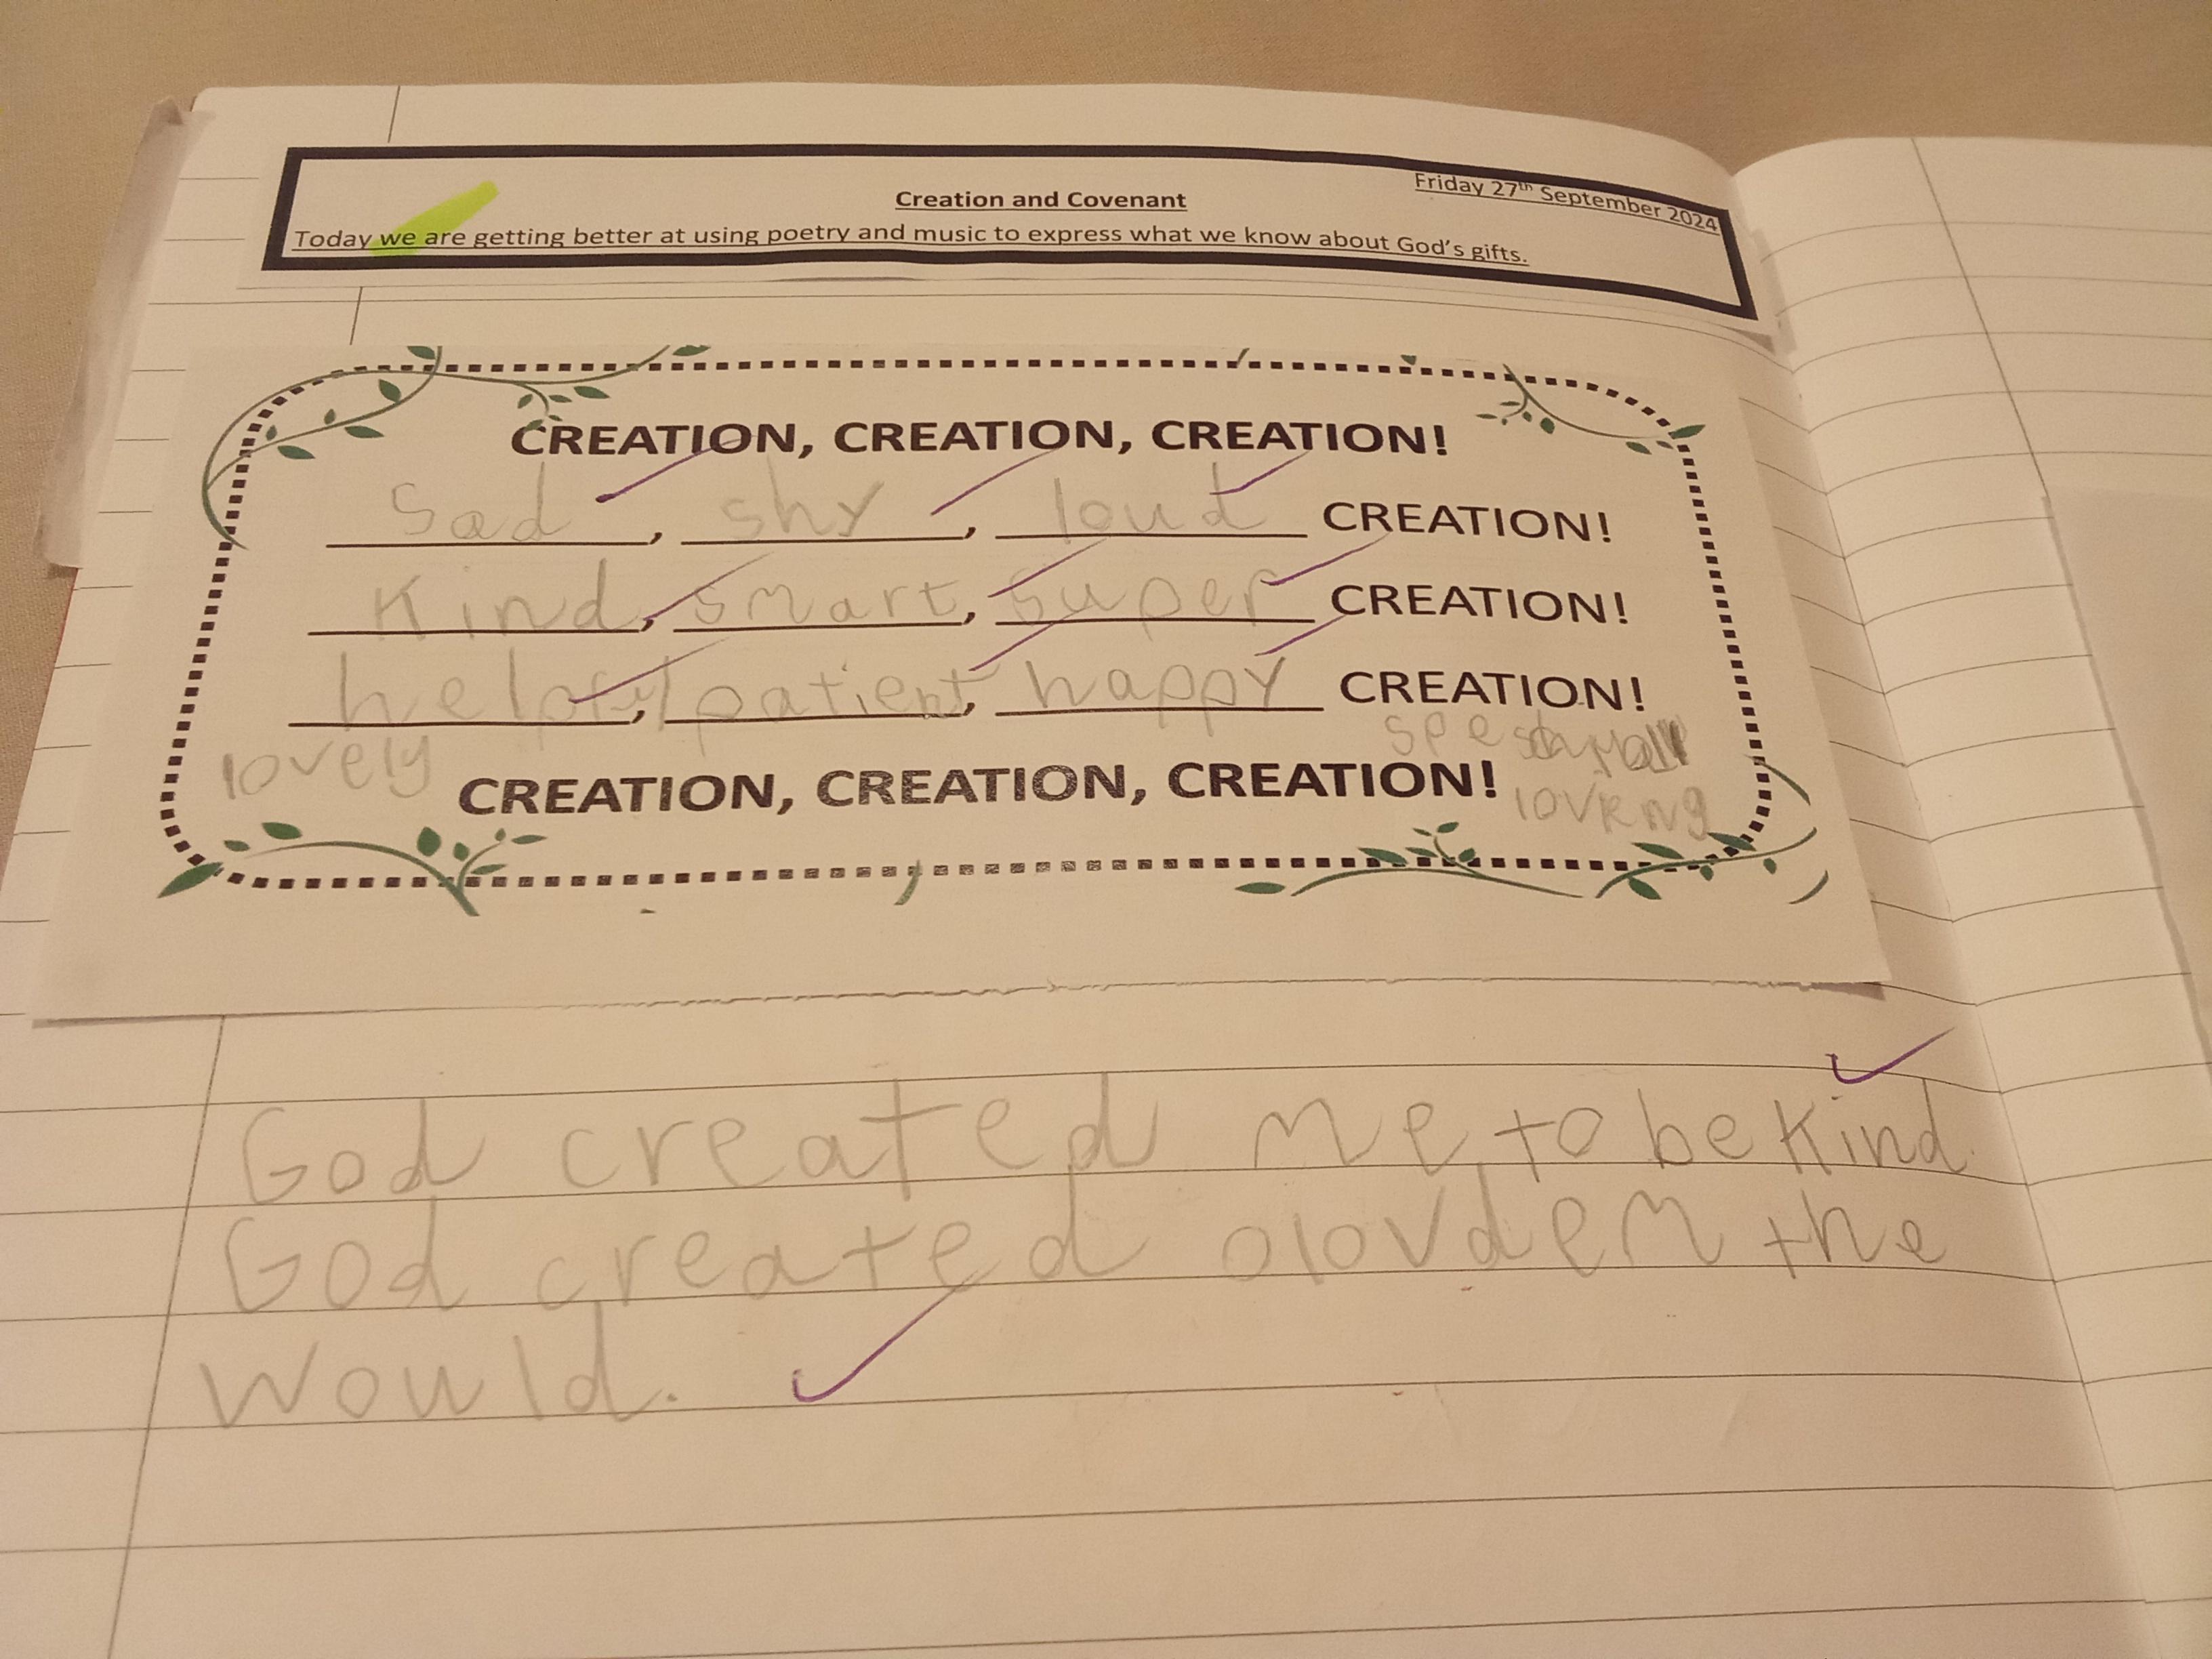 Friday 27th September 2024
Creation and Covenant
Today we are getting better at using poetry and music to express what we know about God's gifts.
CREATION, CREATION, CREATION!
Sad, shy, loud CREATION!
Kind, smart, super CREATION!
helpful, patient, happy CREATION!
lovely
CREATION, CREATION, CREATION!
God created me to be kind.
God created olovdem the
would.